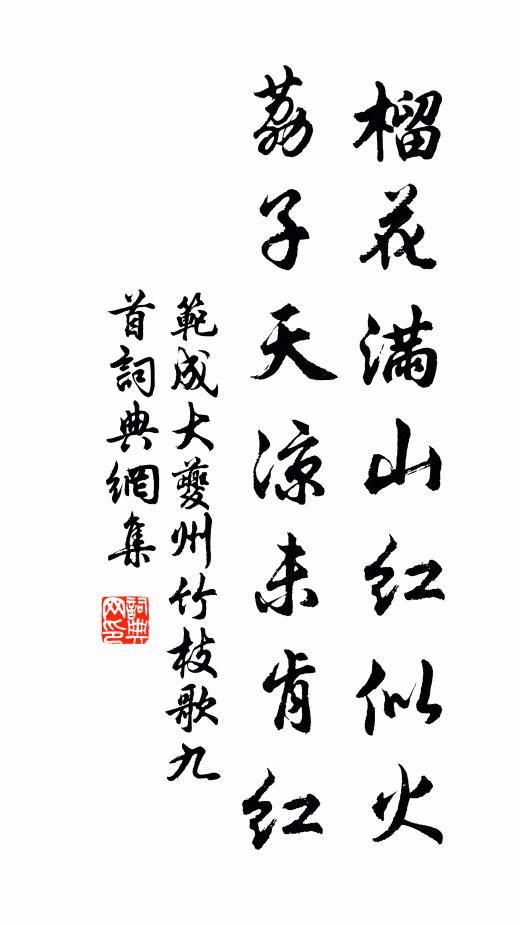 榴花满山红似火
荔子天凉未肯红
範成大夔州竹枝歌九
首詞典網集
詞典
网印